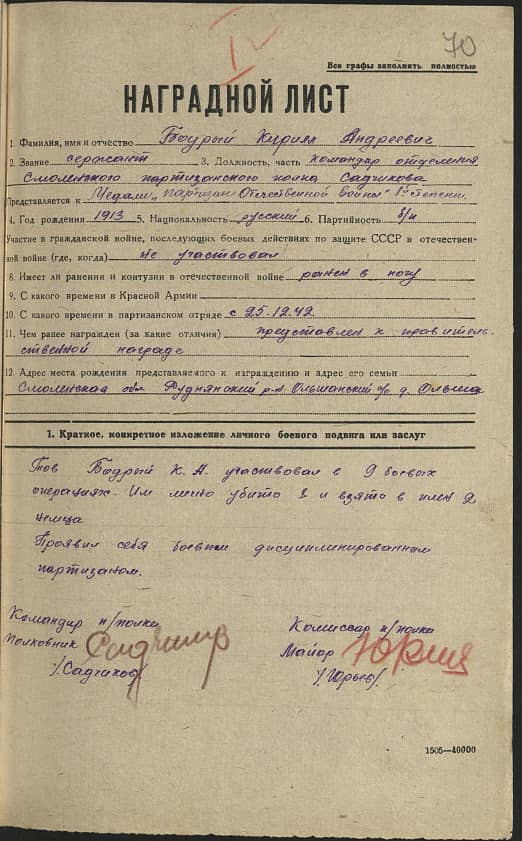 70
Все графы заполнять полностью
НАГРАДНОЙ ЛИСТ
1. Фамилия, имя и отчество Бодрый Кирилл Андреевич
2. Звание сержант 3. Должность, часть командир отделения
Смоленского партизанского полка Садчикова
Представляется к Медали „Партизан Отечественной Войны" 1й степени.
4. Год рождения 1913 5. Национальность русский 6. Партийность б/п
Участие в гражданской войне, последующих боевых действиях по защите СССР в отечествен-
ной войне (где, когда) не участвовал
8. Имеет ли ранения и контузии в отечественной войне ранен в ногу
9. С какого времени в Красной Армии
10. С какого времени в партизанском отряде с 25.12.42
11. Чем ранее награжден (за какие отличия) представлен к правитель-
ственной награде
12. Адрес места рождения представляемого к награждению и адрес его семьи
Смоленская обл Руднянский р-н. Ольшанский с/с д. Ольша
1. Краткое, конкретное изложение личного боевого подвига или заслуг
Тов Бодрый К. А. участвовал в 9 боевых
операциях. Им лично убито и взято в плен 2
немца
Проявил себя боевым дисциплинированным
партизаном.
Командир п/полка
Полковник Садчиков
/Садчиков/
Комиссар п/полка
Майор Юрьев
/Юрьев/.
1505—40000